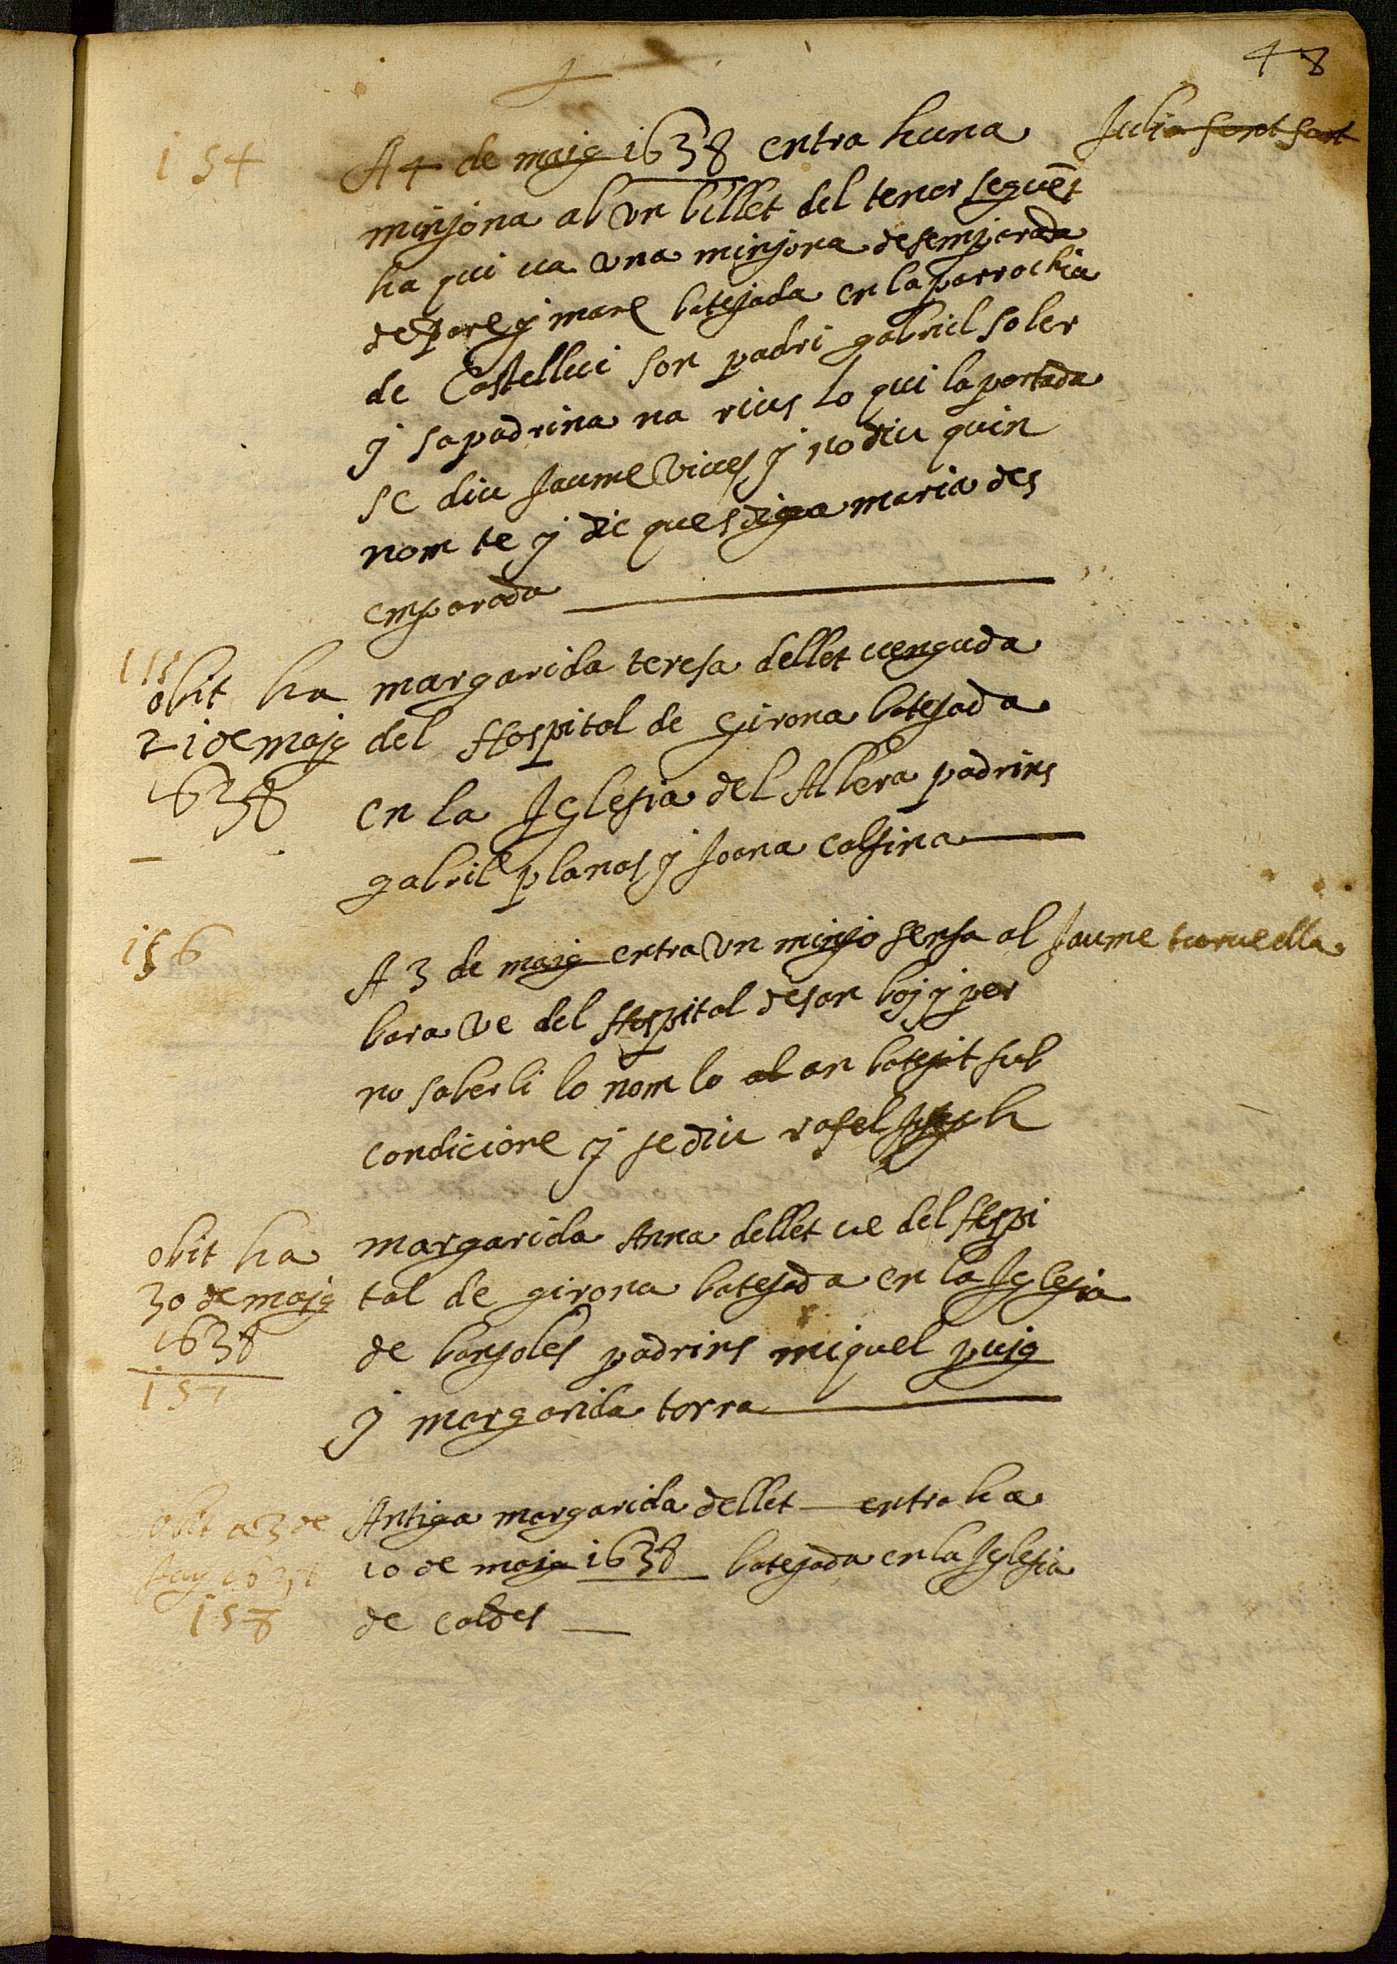 48
154
A 4 de maig 1638 entra huna
Julia font font
minjona ab vn billet del tenor seguẽt
ha qui ua vna minjona desemparada
de pare y mare batejada en la parrochia
de Castellui son padri gabriel soler
y sa padrina na rius lo qui la portada
se diu Jaume Viues y no diu quin
nom te y dic ques diga maria des
emparada
155
obit ha
21 de maig
1638
margarida teresa dellet uenguda
del Hospital de Girona batejada
en la Iglesia del Albera padrins
gabril planas y Joana calsina
156
A 3 de maig entra vn minjo sensa al
Jaume torrella
bara ve del Hospital de san boj y per
no saberli lo nom lo al an batejat sub
condicione y se diu rafel Joseph
obit ha
30 de maig
1638
157
margarida Anna dellet ue del Hospi
tal de girona batejada en la Iglesia
de banyoles padrins miquel puig
y margarida torra
obit a 3 de
Juny 1638
158
Antiga margarida dellet entra ha
10 de maig 1638 batejada en la Iglesia
de caldes